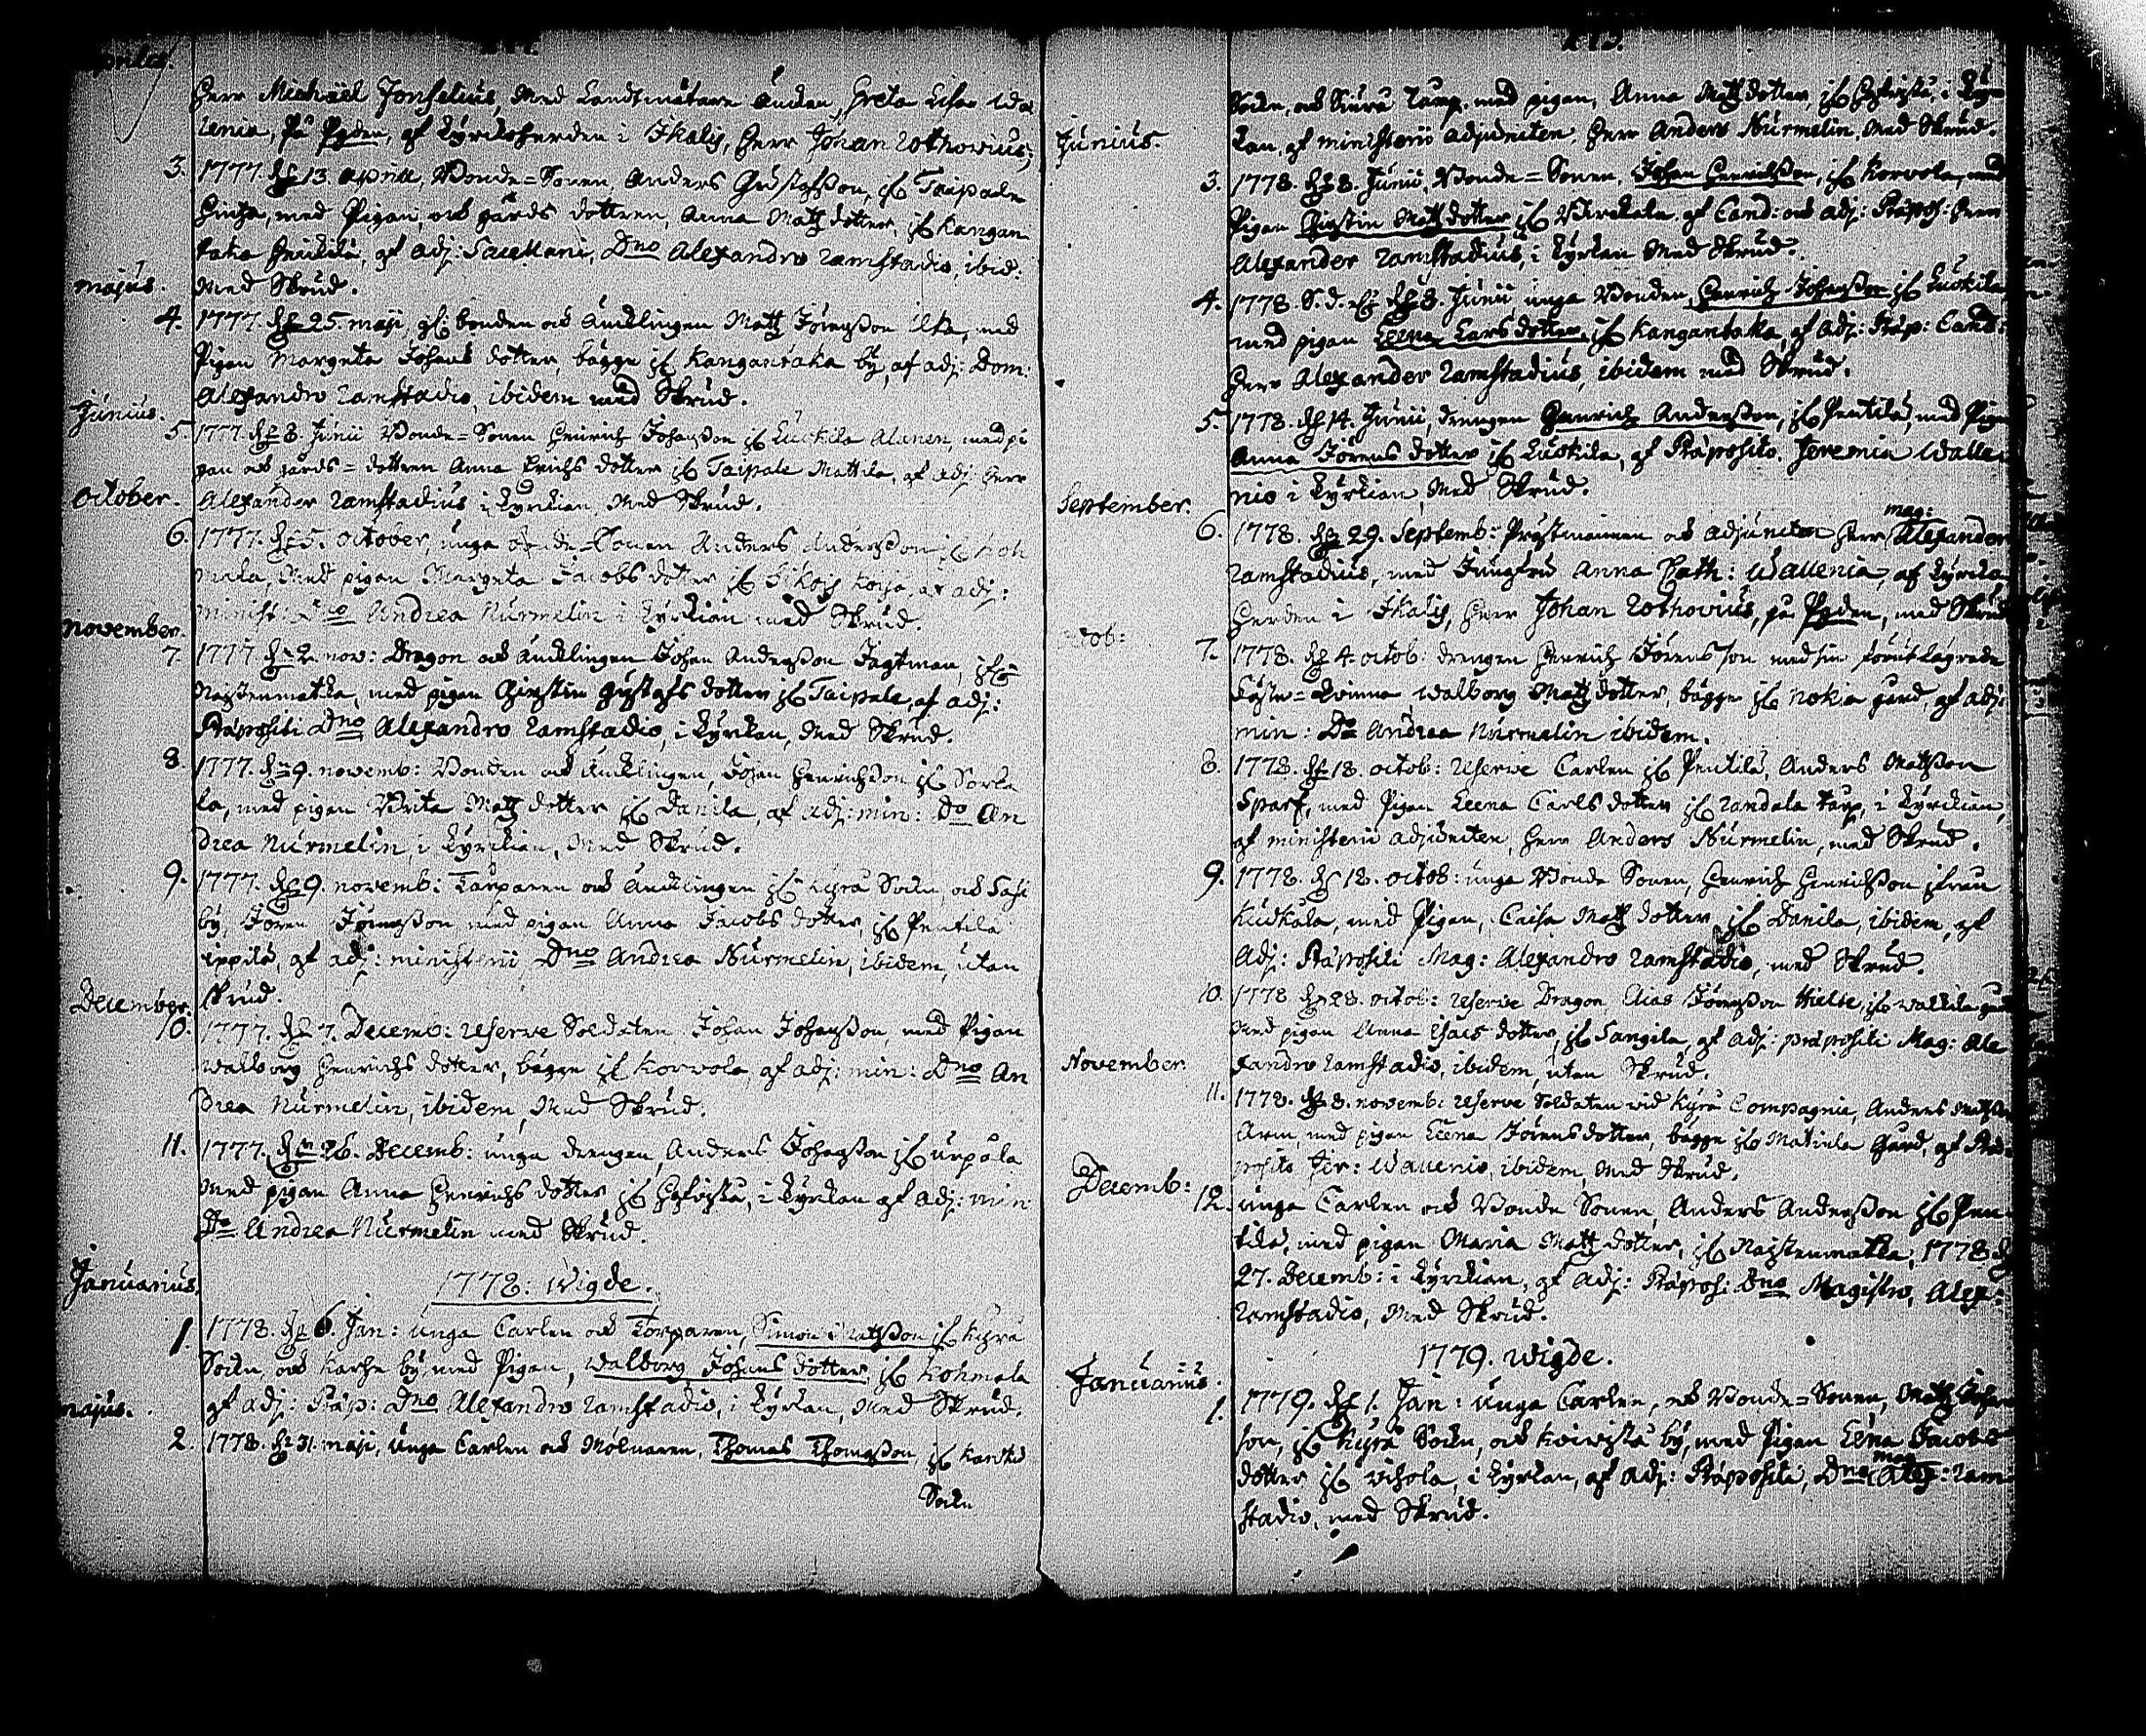 Aprilis.
Herr Michaël Jonselius, med Landtmätare Änckan, Greta Lisa Wal
lenia, På Pyden, af Kyrckoherden i Ikalis, Herr Johan Rothovius;
3. 1777. d. 13. April, Bonde=Sonen, Anders Gustafsson, ifr. Taipale
med Pigan, och gårds dottren, Anna Matz dotter, ifr. Kangan
taka Heickilä, af adj: Sacellani, Dno Alexandro Ramstadio, ibid:
Med Skrud.
Majus.
4. 1777. d. 25. Maji, bonden och Äncklingen Matz Jöransson Ilka, med
Pigan Margeta Johans dotter, bägge ifr. Kangantaka by, af adj: Dom:
Alexandro Ramstadio, ibidem med Skrud.
Junius.
5. 1777. d. 8. Junii Bonde=Sonen Henrich Johansson ifr. Luotila Alanen, med pi
gan och gårds=dottren Anna Erichs dotter ifr. Taipale Mattila, af adj: Herr
October.
Alexander Ramstadius i Kyrckian, Med Skrud.
6. 1777. d. 5. October, unga Bonde=Sonen Anders Andersson ifr. Koh
mala, Med pigan Margeta Jacobs dotter ifr. af adj:
minist: Dno Andrea Nurmelin i Kyrckian med Skrud.
November.
7. 1777 d. 2. nov: Dragon och Äncklingen Johan Andersson Jagtman, ifr.
Naistenmatka, med pigan Christin Gustafs dotter ifr. Taipale, af adj:
Præpositi Dno Alexandro Ramstadio, i Kyrkan, Med Skrud.
8. 1777. d. 9. novemb: Bonden och Äncklingen, Johan Henrichsson ifr. Sorka
la, med pigan Brita Matz dotter ifr. Danila, af adj: min: Do An
drea Nurmelin, i Kyrckian, Med Skrud.
9. 1777. d. 9. novemb: Torparen och Äncklingen ifr. Kyrä Sockn, och Sasi
by, Jören Jöransson med pigan Anna Jacobs dotter, ifr. Pentilä
ippilä, af adj: ministerii Dno Andrea Nurmelin, ibidem, utan
Skrud.
December.
10. 1777. d. 7. Decemb: Reserve Soldaten Johan Johansson, med Pigan
Walborg Henrichs dotter, bägge ifr. Korvola, af adj: min: Dno An
drea Nurmelin, ibidem, Med Skrud.
11. 1777. d. 26. Decemb: unga drengen, Anders Johansson ifr. Urpola
Med pigan Anna Henrichs dotter ifr. i Kyrckan af adj: min:
Do Andrea Nurmelin med Skrud.
1778: Wigde.
Januarius.
1. 1778. d. 6. Jan: unga Carlen och Torparen, Simon Matsson ifr. Kyrä
Sockn, och Karhe by, med Pigan, Walborg Johans dotter ifr. Kohmala
af adj: Præp: Dno Alexandro Ramstadio, i Kyrkan, Med Skrud.
Majus.
2. 1778. d. 31. Maji, Unga Carlen och Mölnaren, Thomas Thomasson ifr.
Sockn
Sockn, och torp. med pigan, Anna Matz dotter, ifr. i Kyrc
kan, af ministerii adjuncten, Herr Anders Nurmelin. Med Skrud.
Junius.
3. 1778. d. 8. Junii, Bonde=Sonen, Johan Henrichsson, ifr. Korvola, med
Pigan Christin Matz dotter ifr. Birckala. af Cand: och adj: Præpos: Herr
Alexander Ramstadius, i Kyrkan Med Skrud.
4. 1778. S. d. d. 8. Junii unga Bonden, Henrich Johansson ifr. Luotila
med pigan Leena Lars dotter ifr. Kangantaka, af adj: Præp: Cand:
Herr Alexander Ramstadius, ibidem med Skrud.
5. 1778. d. 14. Junii, drengen Henrich Andersson, ifr. Pentilä, med Pigan
Anna Jörens dotter ifr. Luotila, af Præposito. Jeremia Walle
nio i Kyrckian, Med Skrud.
September.
mag:
6. 1778. d. 29. Septemb: Prästmannen och adjuncten Herr Alexander
Ramstadius, med Jungfru Anna Cath: Wallenia, af Kyrcko
Herden i Ikalis, Herr Johan Rothovius, på Pyden, med Skrud
Octob:
7. 1778. d. 4. octob: drengen Henrich Jörensson med sin förut lägrade
Fäste=Qvinna, Walborg Matz dotter, bägge ifr. Nokia gård, af adj:
min: Do Andrea Nurmelin ibidem.
8. 1778. d. 18. octob: Reserve Carlen ifr. Pentilä, Anders Matsson
Sparf, med Pigan Leena Carls dotter ifr. Randala torp, i Kyrckian,
af ministerii adjuncten, Herr Anders Nurmelin, med Skrud.
9. 1778. d. 18. octob: unga Bonde Sonen, Henrich Henrichsson ifrån
Kuckala, med Pigan, Caisa Matz dotter ifr. Danila, ibidem, af
Adj: Præpositi Mag: Alexandro Ramstadio, med Skrud.
10. 1778 d. 28. octob: Reserve Dragon, Elias Jöransson Hielte, ifr.
Med pigan Anna Isacs dotter, ifr. Sangila, af adj: præpositi Mag: Ale
xandro Ramstadio, ibidem, utan Skrud.
November.
11. 1778. d. 8. novemb: Reserve Soldaten vid Kyrä Compagnie, Anders Matsson
Arm, med pigan Leena Jörens dotter, bägge ifr. Gård, af Præ
posito Jer: Wallenio, ibidem, Med Skrud.
Decemb:
12. unga Carlen och Bonde Sonen, Anders Andersson ifr. Pen
tilä, med pigan Maria Matz dotter, ifr. Naistenmatka; 1778 d.
27. Decemb: i Kyrckian, af adj: Præpos: Dno Magistro, Alex:
Ramstadio, Med Skrud.
1779. Wigde.
Januarius.
1. 1779. d. 1. Jan: unga Carlen, och Bonde=Sonen, Matz Johans
son, ifr. Kyrä Sockn, och by, med Pigan Lena Jacobs
mag
dotter ifr. Vihola, i Kyrkan, af adj: Præpositi, Dno Alex: Ram
stadio, med Skrud.